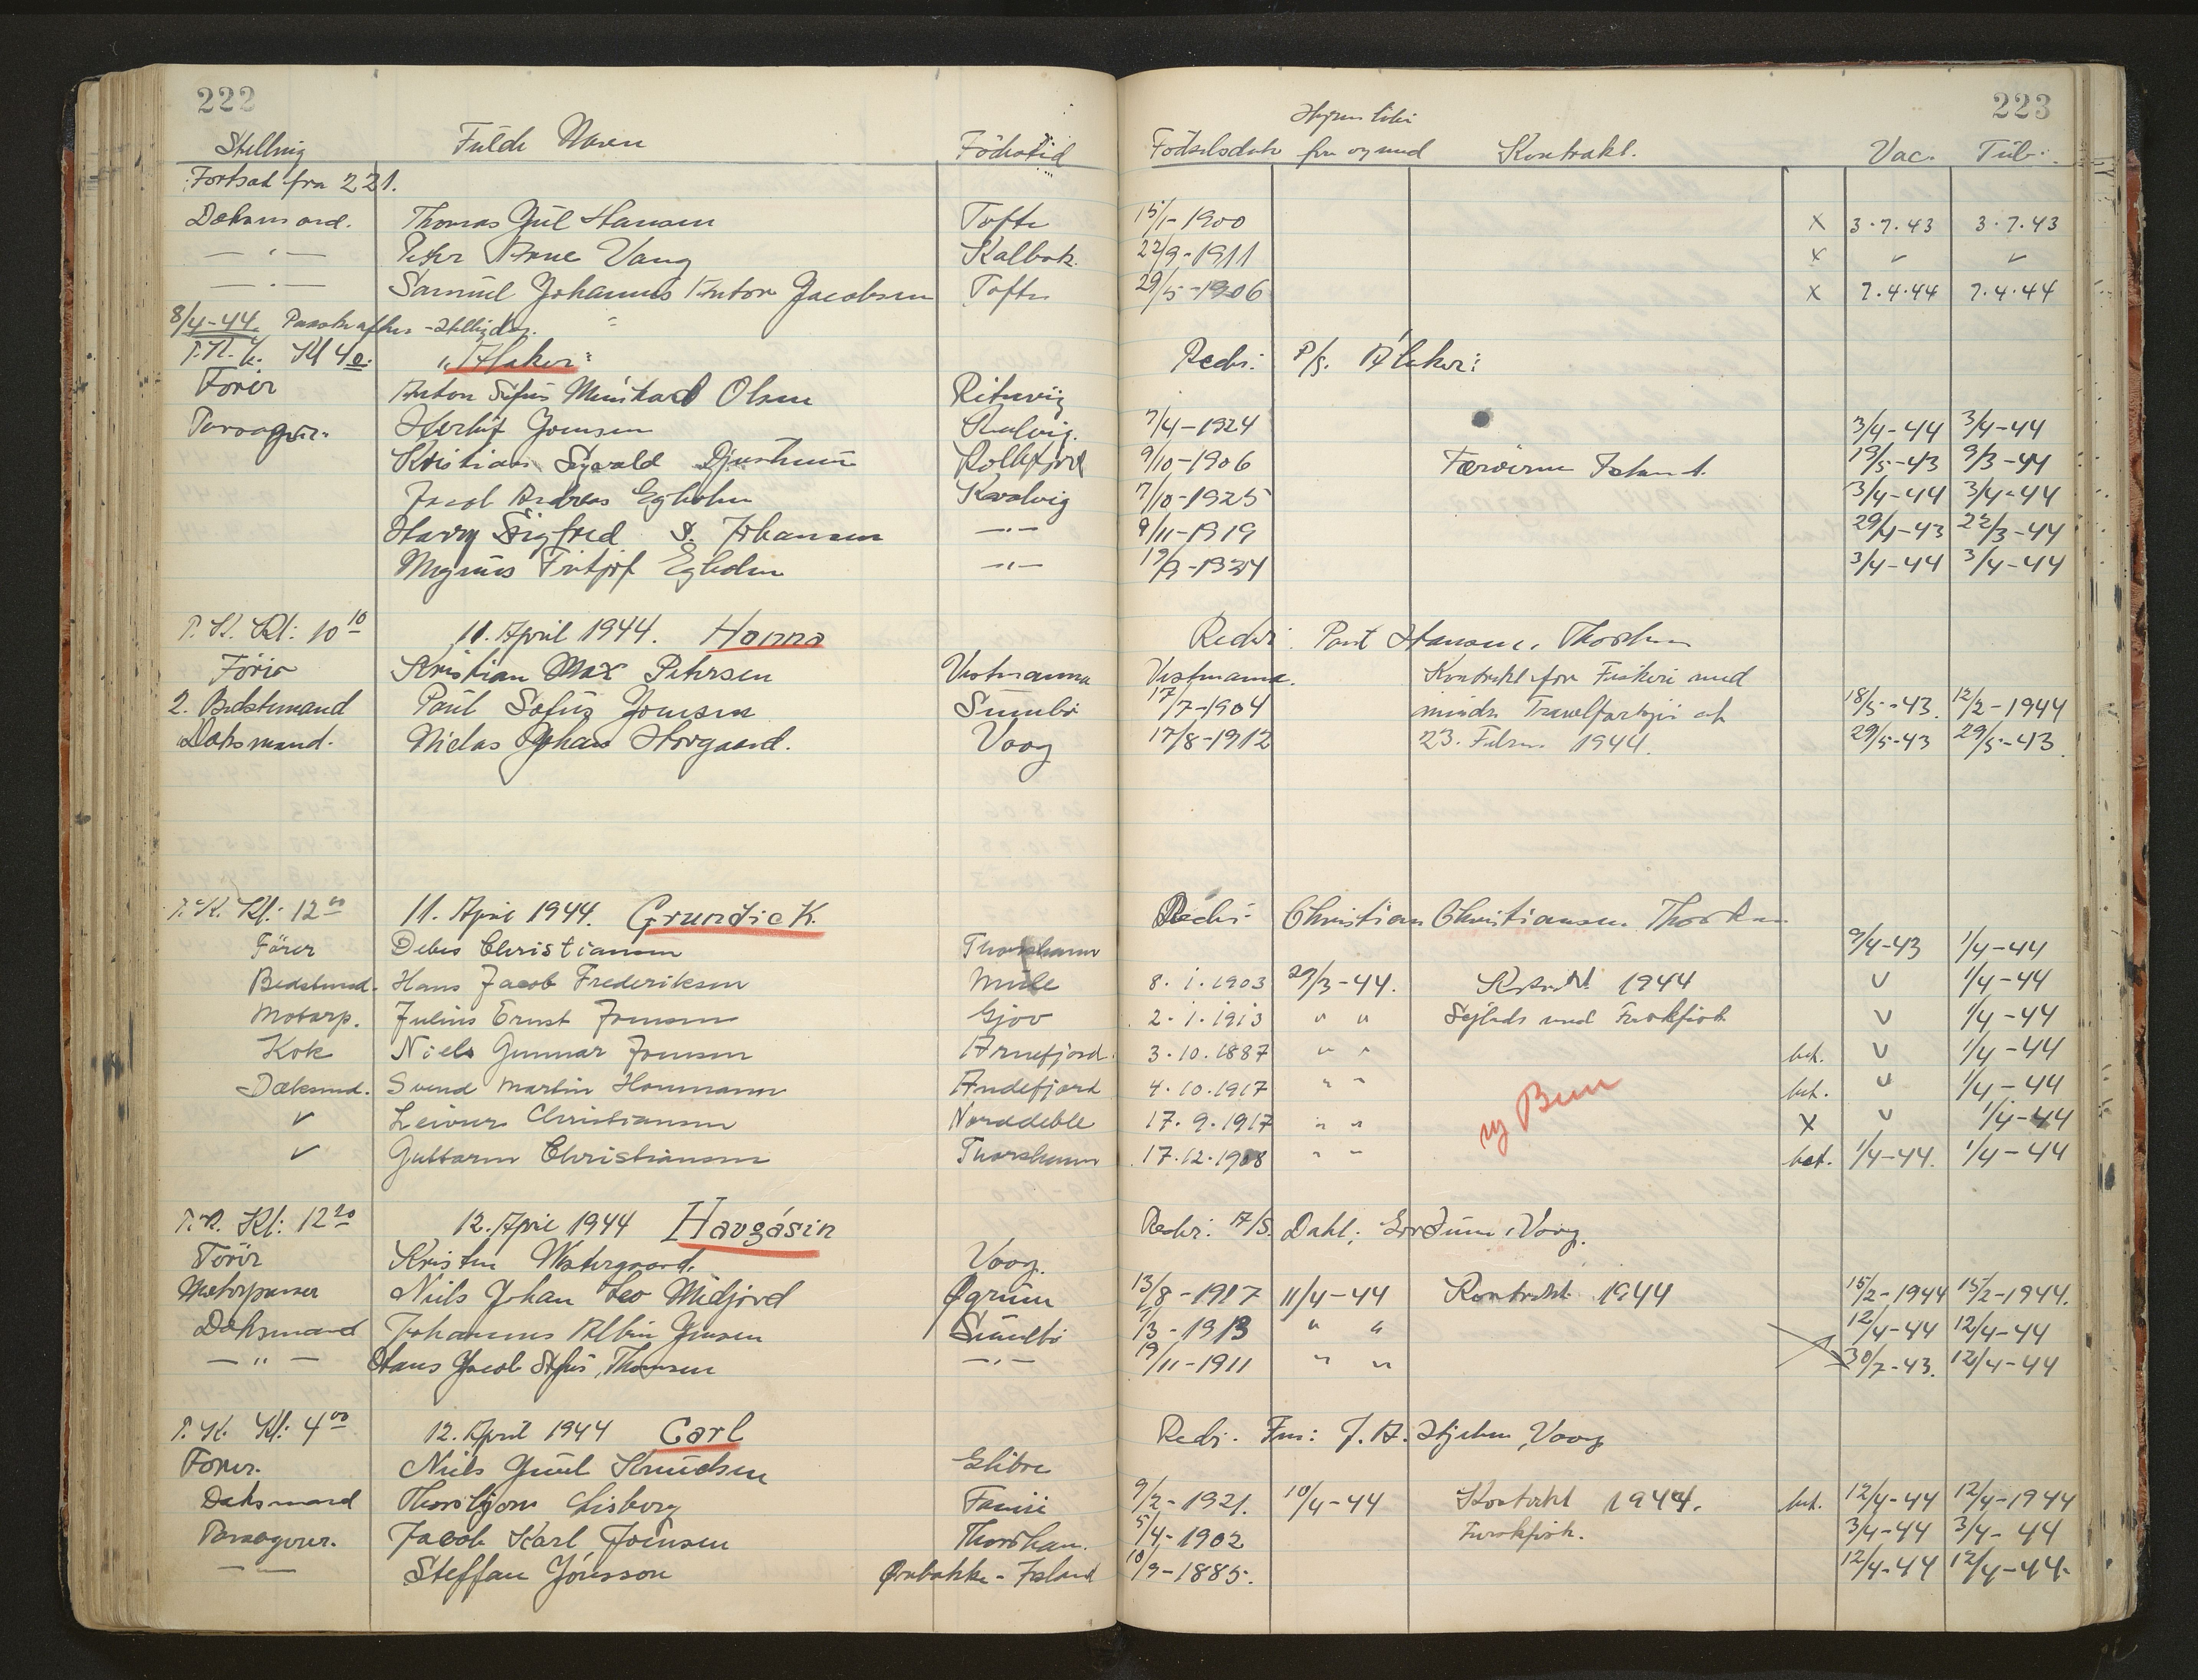 222
223
Stelling Fulde Navn Födested Födselsdato fra og med Kontrakt. Vac. Tub.
Fortsat fra 221.
Dæksmand. Thomas Jul Hansen Tofte 15/1-1900 X 3.7.43 3.7.43
— " — Peter Arne Vang Kalbak. 22/9-1911 x ✓ ✓
— " — Samuel Johannes Anton Jacobsen Tofte 29/5-1906 X 7.4.44 7.4.44
8/4-44.
Kl 40: "Alaker" Rederi: P/S. Alaker:
Förer Anton Sofus Olsen Rituvig
Passager: Joensen 7/4-1924 3/4-44 3/4-44
Kristian 9/10-1906 Færöerne Island. 19/5-43 9/3-44
Jacob Andreas Egholm Kvalvig 7/10-1925 3/4-44 3/4-44
Harry Sigfred S. Johansen —"— 9/11-1919 29/4-43 22/3-44
Magnus Fritjof Egholm —"— 3/4-44 3/4-44
P. K. Kl: 10 10 11. April 1944. Hanna Rederi. Poul Hansen, Thorshavn
Förer Kristian Max Petersen Vestmanna Vestmanna. Kontrakt for Fiskeri med
2. Bedstemand Paul Sofus Joensen Sumbö 17/7-1904 mindre 18/5-43. 12/2-1944
Daksmand. Niclas Johan Hovgaard. Vaag 17/8-1912 23. Febru. 1944. 29/5-43 29/5-43.
P. K. Kl: 12 00 11. April 1944. Grundick. Rederi Christian Christiansen. Thorshavn
Förer Debes Christiansen Thorshavn 9/4-43 1/4-44
Bedstmd. Hans Jacob Frederiksen Mule 8.1.1903 29/3-44. 1944 V 1/4-44
Motorp. Julius Ernst Joensen Gjov 2.1.1913 " " Sejlads med Ferskfisk V 1/4-44
Kok Niels Gunnar Joensen Arnefjord. 3.10.1887 " " bet. V 1/4-44
Dæksmd. Svend Martin Hammann Andefjord 4.10.1917 " " bet. V 1/4-44
✓ Leivur Christiansen Norddeble 17.9.1917 " " X V 1/4-44
✓ Guttorm Christiansen Thorshavn 17.12.1908 " " bet. 1/4-44. 1/4-44
P. K. Kl: 12 20 12. April 1944 Havgásin Rederi: A/S Dahl; Vaag.
Förer Kristen Westergaard. Vaag.
Motorpasser Niels Johan Leo Midjord Øgrum 13/8-1917 11/4-44 Kontrakt 1944 15/2-1944 15/2-1944.
Daksmand Johannes Albin Jensen Sumbö 1/3-1913 " " 12/4-44 12/4-44
— " — Hans Jacob Sofus Thomsen —"— 19/11-1911 " " 30/7-43. 12/4-44
P. K. Kl: 4 00 12. April 1944 Carl Rederi. Fm: Vaag
Förer. Niels Juul Knudsen
Daksmand Thorbjorn Lisberg Famiï 9/2-1921. 10/4-44 Kontrakt 1944. bet. 12/4-44 12/4-1944
Passagerer. Jacob Karl Joensen Thorshavn. 5/4-1902 Ferskfisk. 3/4-44 3/4-44
— " — Steffan Jónsson Ørebakke - Island 10/9-1885. 12/4-44 12/4-44.